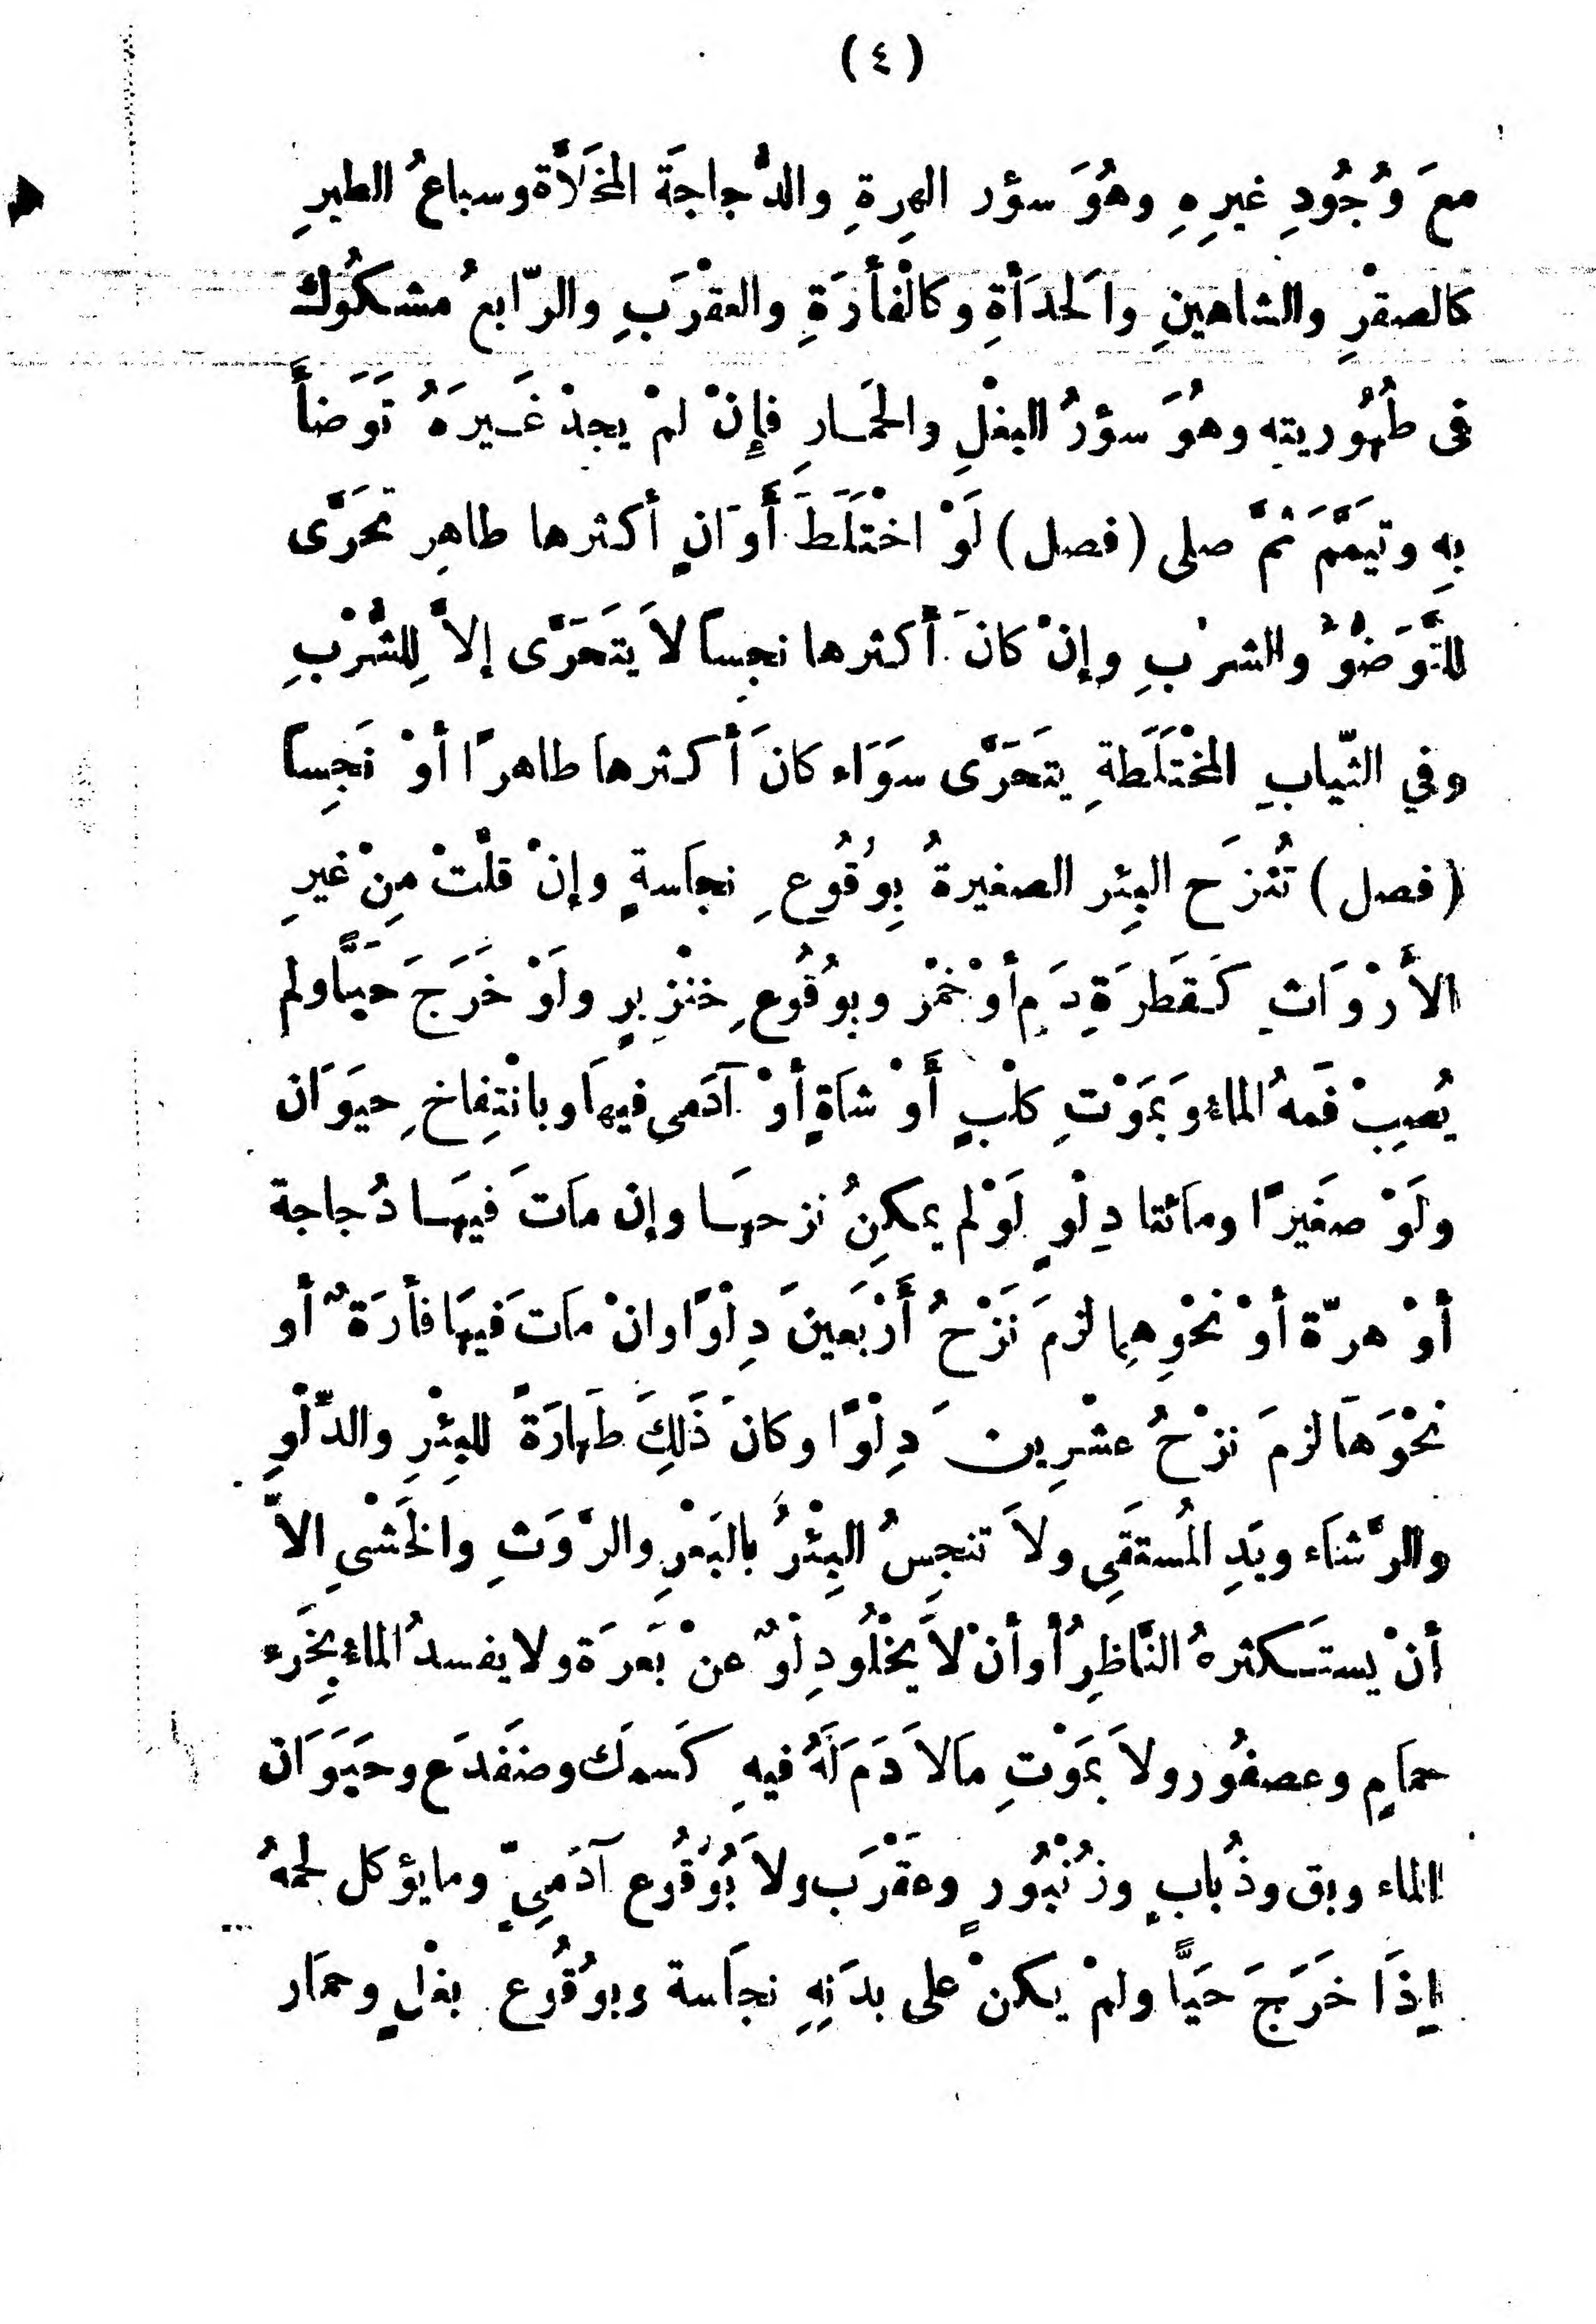 (٤)
معَ وُجُودِ غيرِهِ وهُوَ سؤر الهِرةِ والدُّجاجَة المُخَلَّاة وسباعُ الطيرِ
كالصقْرِ والشاهينِ والحَدَأةِ وكالْفأرَةِ والعقْرَبِ والرّابعُ مشكُوك
فى طُهُوريته وهُوَ سؤرُ البغْلِ والحمَـارِ فإِنْ لمْ يجِدْ غَـيرَهُ تَوَضأَ
بِهِ وتيَمَّمَ ثُمَّ صلى (فصل) لَوْ اخْتَلَطَ أَوَانٍ أكثرها طاهِر تَحَرَّى
للتَّوَضُّؤِ والشرْبِ وإنْ كانَ أكثرها نجِساً لاَ يتَحَرَّى إلاَّ لِلشُّرْبِ
وفي الثّيابِ المُخْتَلَطةِ يتَحَرَّى سوَاء كانَ أكثرها طاهرًا أوْ نَجِساً
(فصل) تُنْزَح البِئر الصغيرةُ بِوُقُوعِ نجاسةٍ وإنْ قلّتْ مِنْ غيرِ
الأَرْوَاثِ كَـقَطرَةِ دَمٍ أوْ خَمْر وبِوُقُوعِ خنْزِيرٍ ولَوْ خَرَجَ حَيًّا ولم
يُصِبْ فَمهُ الماءُ وَبمَوْتِ كلْبٍ أَوْ شاَةٍ أوْ آدَمىٍ فيهاَ وبانْتِفاخِ حيَوَان
ولَوْ صغَيرًا ومائتا دِلْوٍ لَوْ لم يمكِنُ نزحهَـا وإن ماَتَ فيَهـا دُجاجة
أوْ هرّة أوْ نحْوِهِما لزمَ نَزْحُ أَرْبَعينَ دِلْوًا وانْ ماَتَ فيَها فأرَةٌ أو
نحْوَهاَ لزمَ نزْحُ عشْرِينَ دِلْوًا وكانَ ذَلِكَ طَهارَةً للبِئْرِ والدّلْوِ
والرِّشاَء ويَدِ المُستقَى ولاَ تنجِسُ البِئْرُ بالبَعْرِ والرَّوَثِ والخَشْىِ الاَّ
أنْ يستَـكثرهُ النَّاظِرُ أو أنْ لاَ يَخْلُو دِلْوٌ عنْ بَعرَة ولا يفسدُ الماءُ بِخَرءِ
حماَمٍ وعصفُور ولاَ بمَوْتِ ماَلاَ دَم لَهُ فيهِ كَسمك وضفَدَع وحَيَوَان
الماء وبق وذُبابٍ وزُنْبُورٍ وعقْرَب ولاَ بُوُقُوع آدَمىٍّ وما يؤكل لحمهُ
إذَا خَرَجَ حَيًّا ولمْ يكنْ على بدَنِهِ نجاَسة وبوُقُوع بغْلٍ وحمَار